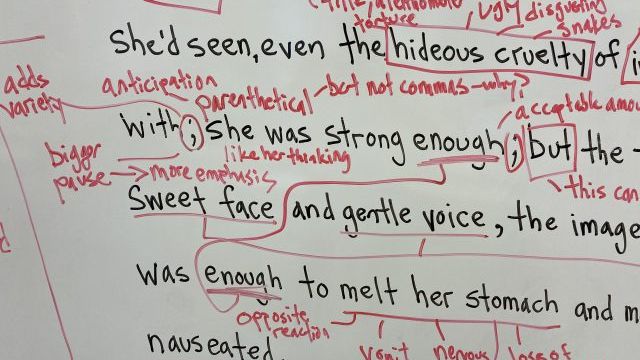 ugly disgusting
torture
snakes
She'd seen, even the hideous cruelty of
adds
variety
anticipation
parenthetical
but not commas-why?
acceptable amou
with; she was strong enough; but the
bigger
pause → more emphasis
like her thinking
this can
Sweet face and gentle voice, the image
was enough to melt her stomach and m
opposite
reaction
vomit nervous loss of
nauseated